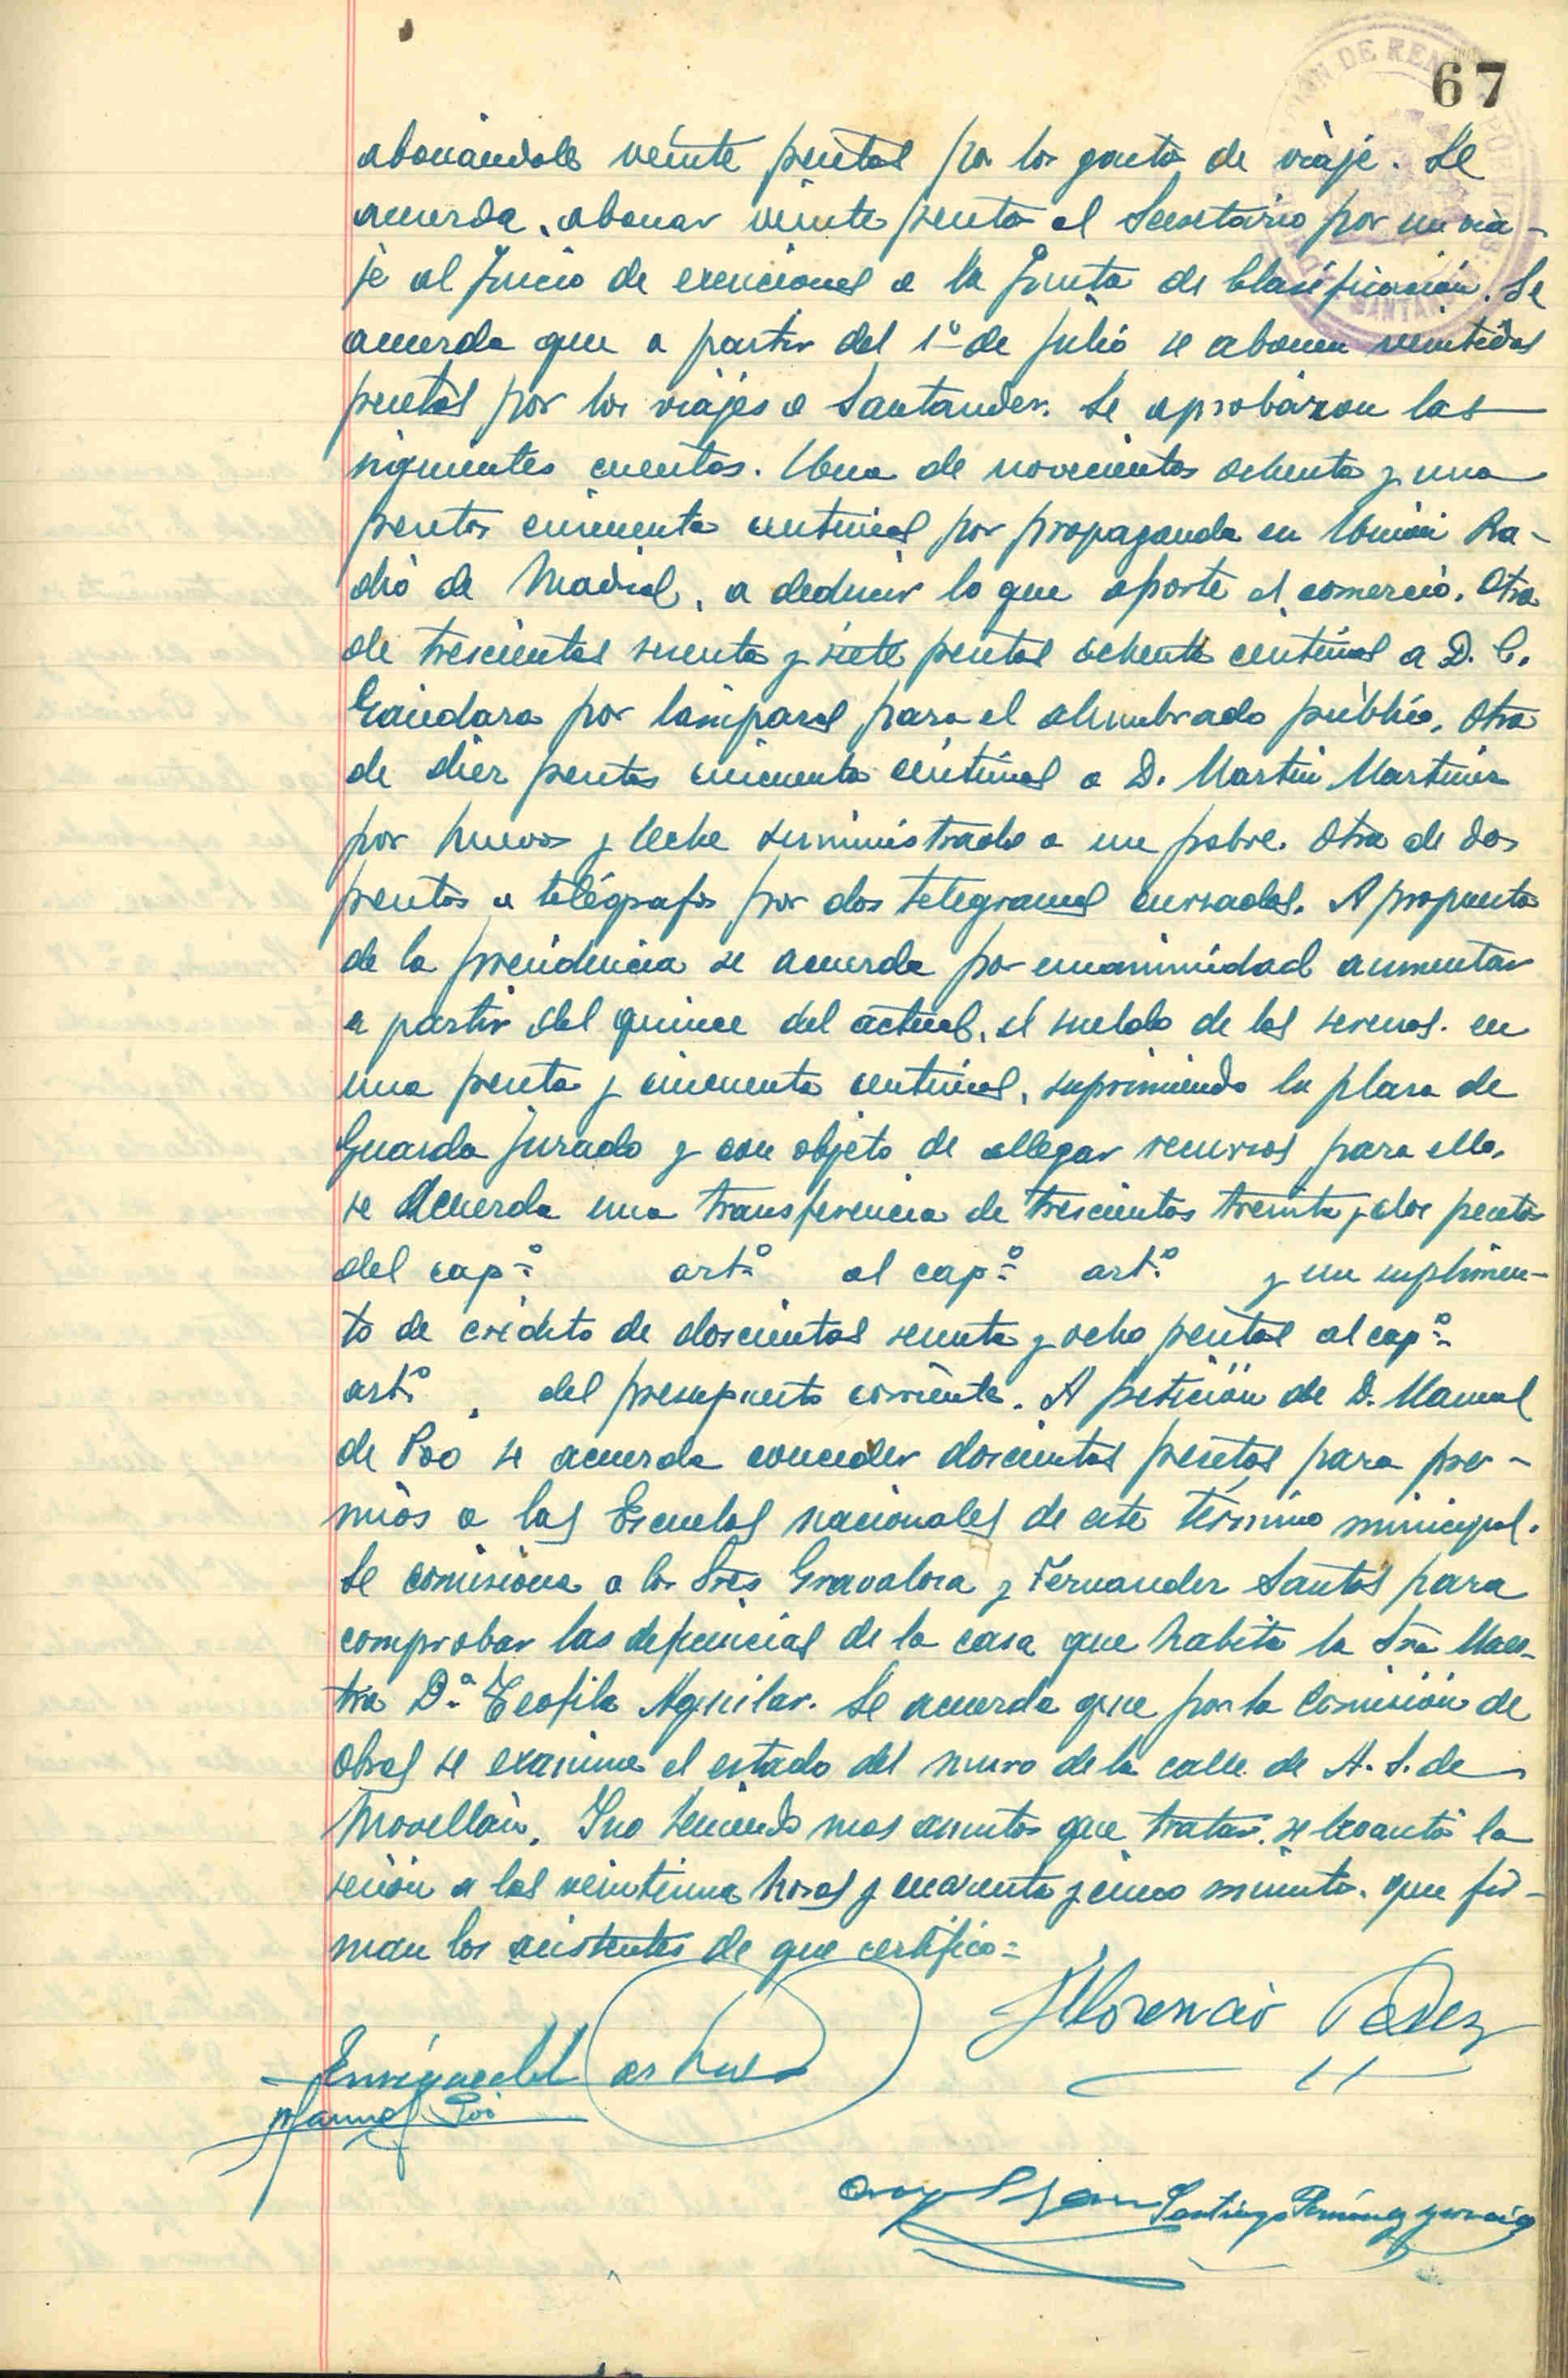 67
abonándole veinte pesetas por los gastos de viaje. Se
acuerda, abonar veinte pesetas al Secretario por un via-
je al Juicio de exenciones a la Junta de Clasificación. Se
acuerda que a partir del 1º de Julio se abonen veintidos
pesetas por los viajes a Santander. Se aprobaron las
siguientes cuentas. Una de novecientas ochenta y una
pesetas cincuenta centimos por propaganda en Unión Ra-
dio de Madrid, a deducir lo que aporte el comercio. Otra
de trescientas sesenta y siete pesetas ochenta centimos a D. C.
Gándara por lámparas para el alumbrado público. Otra
de diez pesetas cincuenta céntimos a D. Martin Martinez
por huevos y leche suministrado a un pobre. Otra de dos
pesetas a telégrafos por dos telegramas cursados. A propuesta
de la presidencia se acuerda por unanimidad aumentar
a partir del quince del actual, el sueldo de los serenos en
una peseta y cincuenta centimos, suprimiendo la plaza de
Guarda Jurado y con objeto de allegar recursos para ello,
se Acuerda una transferencia de trescientas treinta y dos pesetas
del capº artº al capº artº y un suplimen-
to de crédito de doscientas sesenta y ocho pesetas al capº
artº , del presupuesto corriente. A petición de D. Manuel
de Poo se acuerda conceder doscientas pesetas para pre-
mios a las Escuelas nacionales de este término municipal.
Se comisiona a los Sres Gravalosa y Fernandez Santos para
comprobar las deficiencias de la casa que habita la Sra Maes-
tra D.ª Teofila Aguilar. Se acuerda que por la Comisión de
obras se examine el estado del muro de la calle de A. S. de
Movellán. Y no teniendo mas asuntos que tratar, se levantó la
sesión a las veintiuna horas y cuarenta y cinco minutos que fir-
man los asistentes de que certifico=
Florencio
Enrique del
Manuel Poo
Santiago